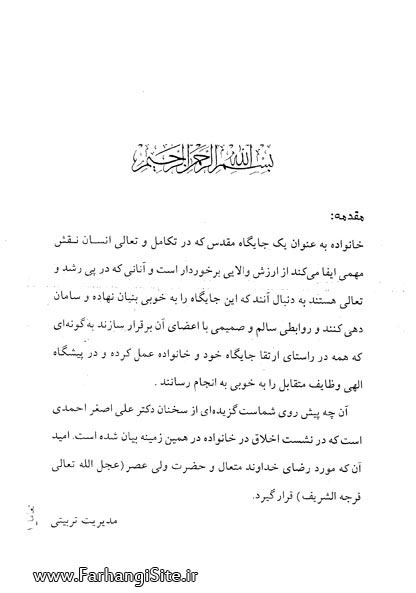 بسم الله الرحمن الرحیم
مقدمه:
خانواده به عنوان یک جایگاه مقدس که در تکامل و تعالی انسان نقش
مهمی ایفا می‌کند از ارزش والایی برخوردار است و آنانی که در پی رشد و
تعالی هستند به دنبال آنند که این جایگاه را به خوبی بنیان نهاده و سامان
دهی کنند و روابطی سالم و صمیمی با اعضای آن برقرار سازند به گونه‌ای
که همه در راستای ارتقا جایگاه خود و خانواده عمل کرده و در پیشگاه
الهی وظایف متقابل را به خوبی به انجام رسانند .
آن چه پیش روی شماست گزیده‌ای از سخنان دکتر علی اصغر احمدی
است که در نشست اخلاق در خانواده در همین زمینه بیان شده است. امید
آن که مورد رضای خداوند متعال و حضرت ولی عصر (عجل الله تعالی
فرجه الشریف) قرار گیرد.
مدیریت تربیتی
www.FarhangiSite.ir